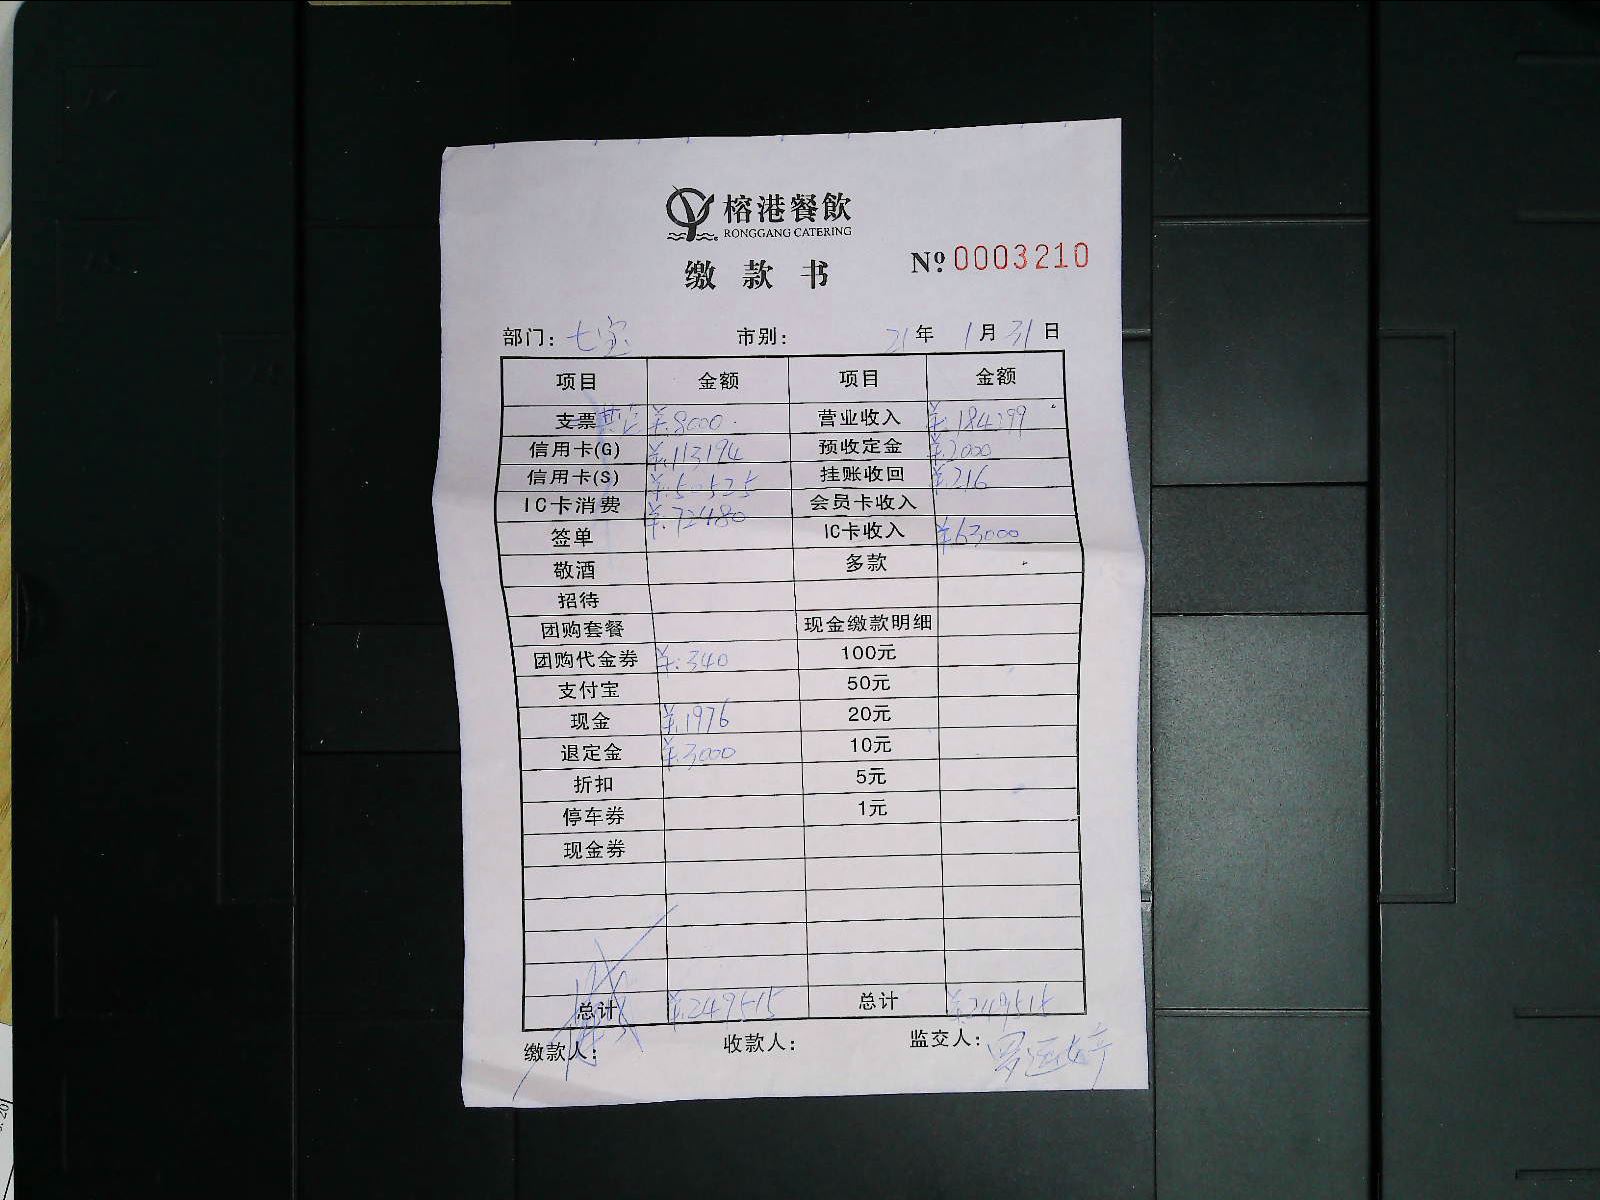 榕港餐飲
RONGGANG CATERING
缴款书
№ 0003210
部门: 七宝 市别: 21年 1月31日
项目 金额 项目 金额
支票 ¥:8000 营业收入 ¥:184299
信用卡(G) ¥:113194 预收定金 ¥:2000
信用卡(S) ¥:50525 挂账收回 ¥:216
IC卡消费 ¥:72480 会员卡收入
签单 IC卡收入 ¥:63000
敬酒 多款
招待
团购套餐 现金缴款明细
团购代金券 ¥:340 100元
支付宝 50元
现金 ¥:1976 20元
退定金 ¥:3000 10元
折扣 5元
停车券 1元
现金券
总计 ¥:249515 总计 ¥:249515
缴款人: 收款人: 监交人: